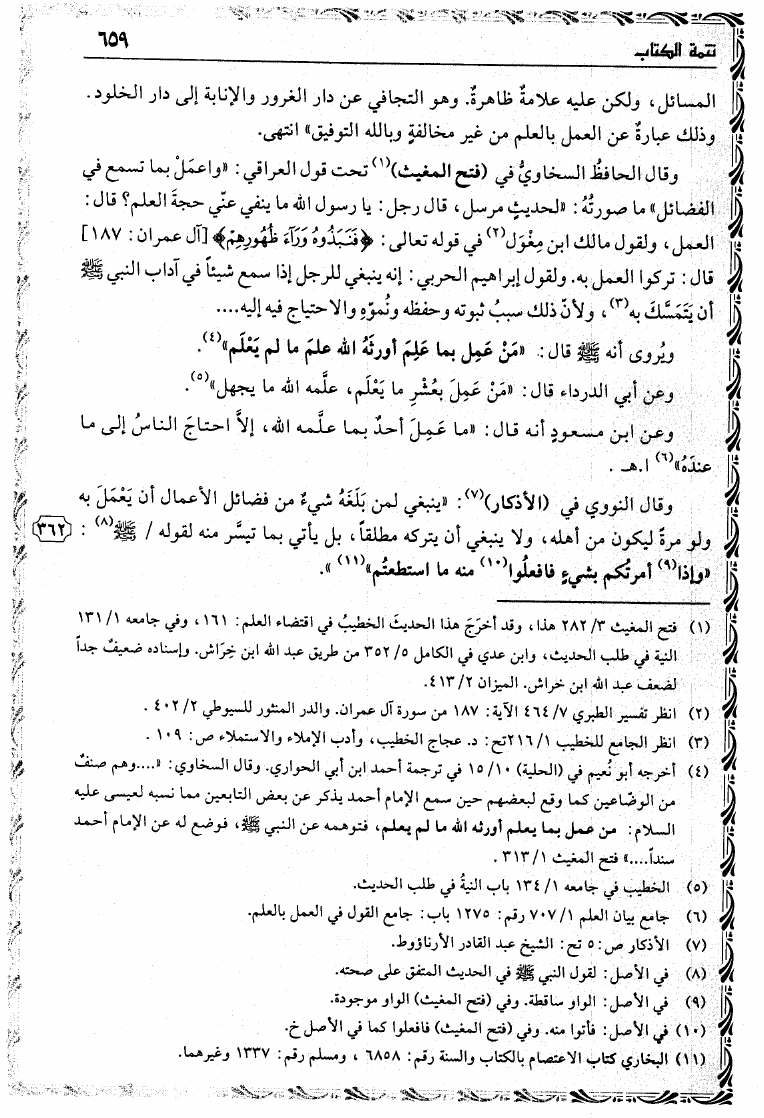 ٦٥٩
تتمة الكتاب
المسائل، ولكن عليه علامةٌ ظاهرةٌ. وهو التجافي عن دار الغرور والإنابة إلى دار الخلود.
وذلك عبارةٌ عن العمل بالعلم من غير مخالفةٍ وبالله التوفيق» انتهى.
وقال الحافظُ السخاويُّ في (فتح المغيث)(١) تحت قول العراقي: «واعمَلْ بما تسمع في
الفضائل» ما صورتُهُ: «لحديثٍ مرسل، قال رجل: يا رسول الله ما ينفي عنّي حجةَ العلم؟ قال:
العمل، ولقول مالك ابن مِغْوَل(٢) في قوله تعالى: ﴿فَنَبَذُوهُ وَرَآءَ ظُهُورِهِمْ﴾ [آل عمران: ١٨٧]
قال: تركوا العمل به. ولقول إبراهيم الحربي: إنه ينبغي للرجل إذا سمع شيئاً في آداب النبي ﷺ
أن يَتَمَسَّكَ به(٣)، ولأنّ ذلك سببُ ثبوته وحفظه ونُموّهِ والاحتياج فيه إليه....
ويُروى أنه ﷺ قال: «مَنْ عَمِل بما عَلِمَ أورثَهُ الله علمَ ما لم يَعْلَم»(٤).
وعن أبي الدرداء قال: «مَنْ عَمِلَ بعُشْرِ ما يَعْلَم، علَّمه الله ما يجهل»(٥).
وعن ابن مسعودٍ أنه قال: «ما عَمِلَ أحدٌ بما علَّمه الله، إلاَّ احتاجَ الناسُ إلى ما
عندَهُ»(٦) ا.هـ .
وقال النووي في (الأذكار)(٧): «ينبغي لمن بَلَغَهُ شيءٌ من فضائل الأعمال أن يَعْمَلَ به
ولو مرةً ليكون من أهله، ولا ينبغي أن يتركه مطلقاً، بل يأتي بما تيسَّر منه لقوله / ﷺ(٨) :
٣٦٢
«وإذا(٩) أمرتُكم بشيءٍ فافعلُوا(١٠) منه ما استطعتُم»(١١) ».
(١) فتح المغيث ٣/ ٢٨٢ هذا، وقد أخرَجَ هذا الحديثَ الخطيبُ في اقتضاء العلم: ١٦١، وفي جامعه ١/ ١٣١
النية في طلب الحديث، وابن عدي في الكامل ٥/ ٣٥٢ من طريق عبد الله ابن خِرَاش. وإسناده ضعيفٌ جداً
لضعف عبد الله ابن خراش. الميزان ٢/ ٤١٣.
(٢) انظر تفسير الطبري ٧/ ٤٦٤ الآية: ١٨٧ من سورة آل عمران. والدر المنثور للسيوطي ٢/ ٤٠٢ .
(٣) انظر الجامع للخطيب ١/ ٢١٦ تح: د. عجاج الخطيب، وأدب الإملاء والاستملاء ص: ١٠٩ .
(٤) أخرجه أبو نُعيم في (الحلية) ١٠/ ١٥ في ترجمة أحمد ابن أبي الحواري. وقال السخاوي: «....وهم صنفٌ
من الوضّاعين كما وقع لبعضهم حين سمع الإمام أحمد يذكر عن بعض التابعين مما نسبه لعيسى عليه
السلام: من عمل بما يعلم أورثه الله ما لم يعلم، فتوهمه عن النبي ﷺ، فوضع له عن الإمام أحمد
سنداً....» فتح المغيث ١/ ٣١٣ .
(٥) الخطيب في جامعه ١/ ١٣٤ باب النيةُ في طلب الحديث.
(٦) جامع بيان العلم ١/ ٧٠٧ رقم: ١٢٧٥ باب: جامع القول في العمل بالعلم.
(٧) الأذكار ص: ٥ تح: الشيخ عبد القادر الأرناؤوط.
(٨) في الأصل: لقول النبي ﷺ في الحديث المتفق على صحته.
(٩) في الأصل: الواو ساقطة. وفي (فتح المغيث) الواو موجودة.
(١٠) في الأصل: فأتوا منه. وفي (فتح المغيث) فافعلوا كما في الأصل خ.
(١١) البخاري كتاب الاعتصام بالكتاب والسنة رقم: ٦٨٥٨ ، ومسلم رقم: ١٣٣٧ وغيرهما.